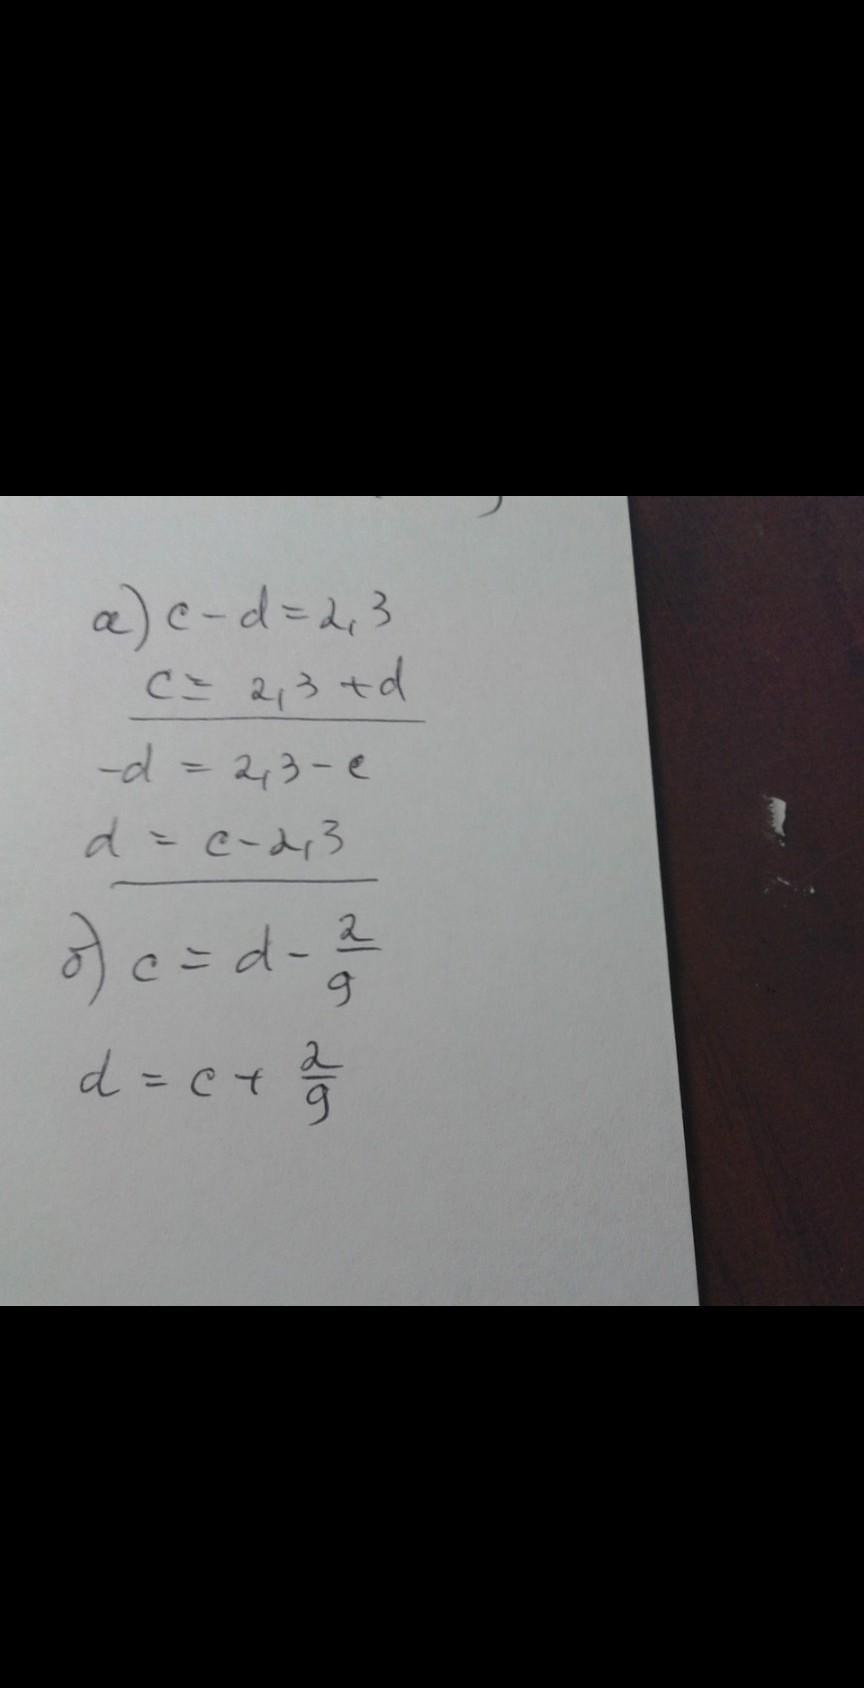 а) c - d = 2,3
c = 2,3 + d
-d = 2,3 - c
d = c - 2,3
б) c = d - 2/9
d = c + 2/9